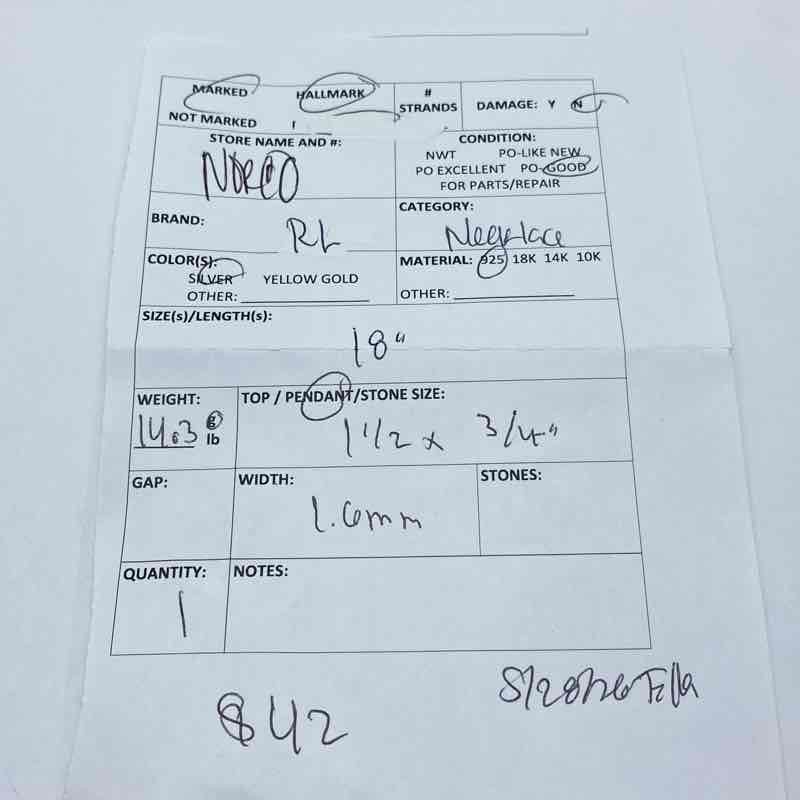 MARKED HALLMARK
NOT MARKED
# STRANDS
DAMAGE: Y N
STORE NAME AND #:
NORCO
CONDITION:
NWT PO-LIKE NEW
PO EXCELLENT PO-GOOD
FOR PARTS/REPAIR
BRAND:
RL
CATEGORY:
Necklace
COLOR(S):
SILVER YELLOW GOLD
OTHER:
MATERIAL: 925 18K 14K 10K
OTHER:
SIZE(s)/LENGTH(s):
18"
WEIGHT:
14.3 g
lb
TOP / PENDANT/STONE SIZE:
1 1/2 x 3/4"
GAP:
WIDTH:
1.6mm
STONES:
QUANTITY:
1
NOTES:
$42